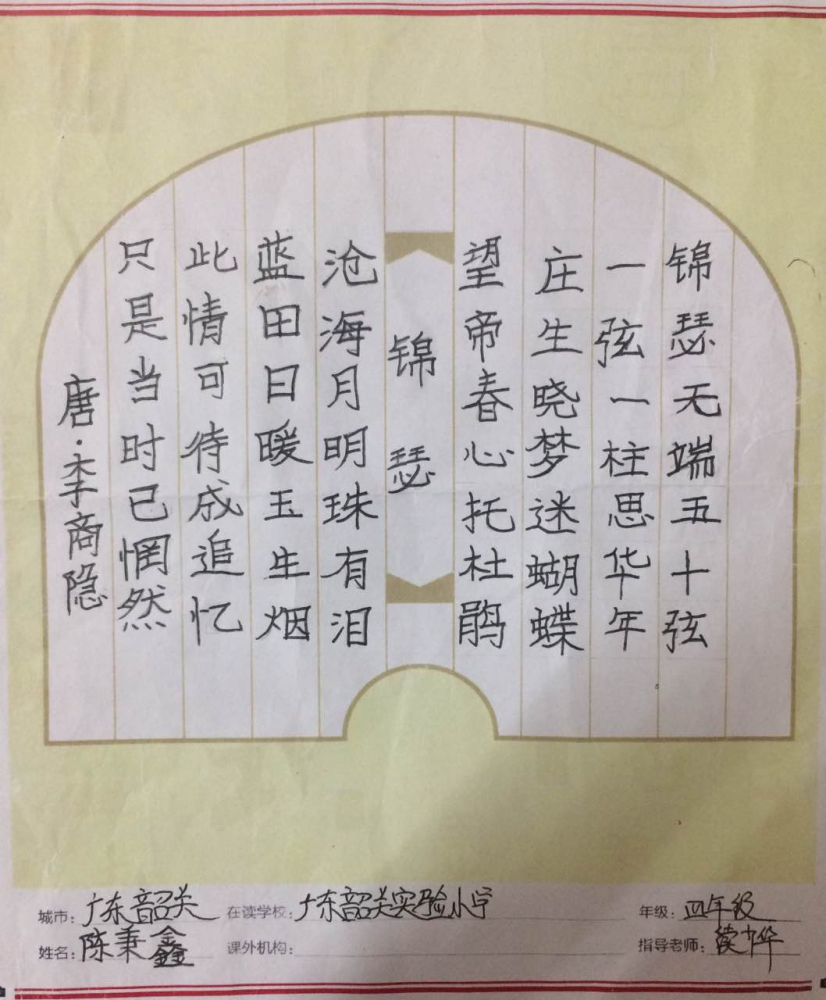 锦瑟无端五十弦
一弦一柱思华年
庄生晓梦迷蝴蝶
望帝春心托杜鹃
锦瑟
沧海月明珠有泪
蓝田日暖玉生烟
此情可待成追忆
只是当时已惘然
唐·李商隐
城市：广东韶关 在读学校：广东韶关实验小学 年级：四年级
姓名：陈秉鑫 课外机构： 指导老师：